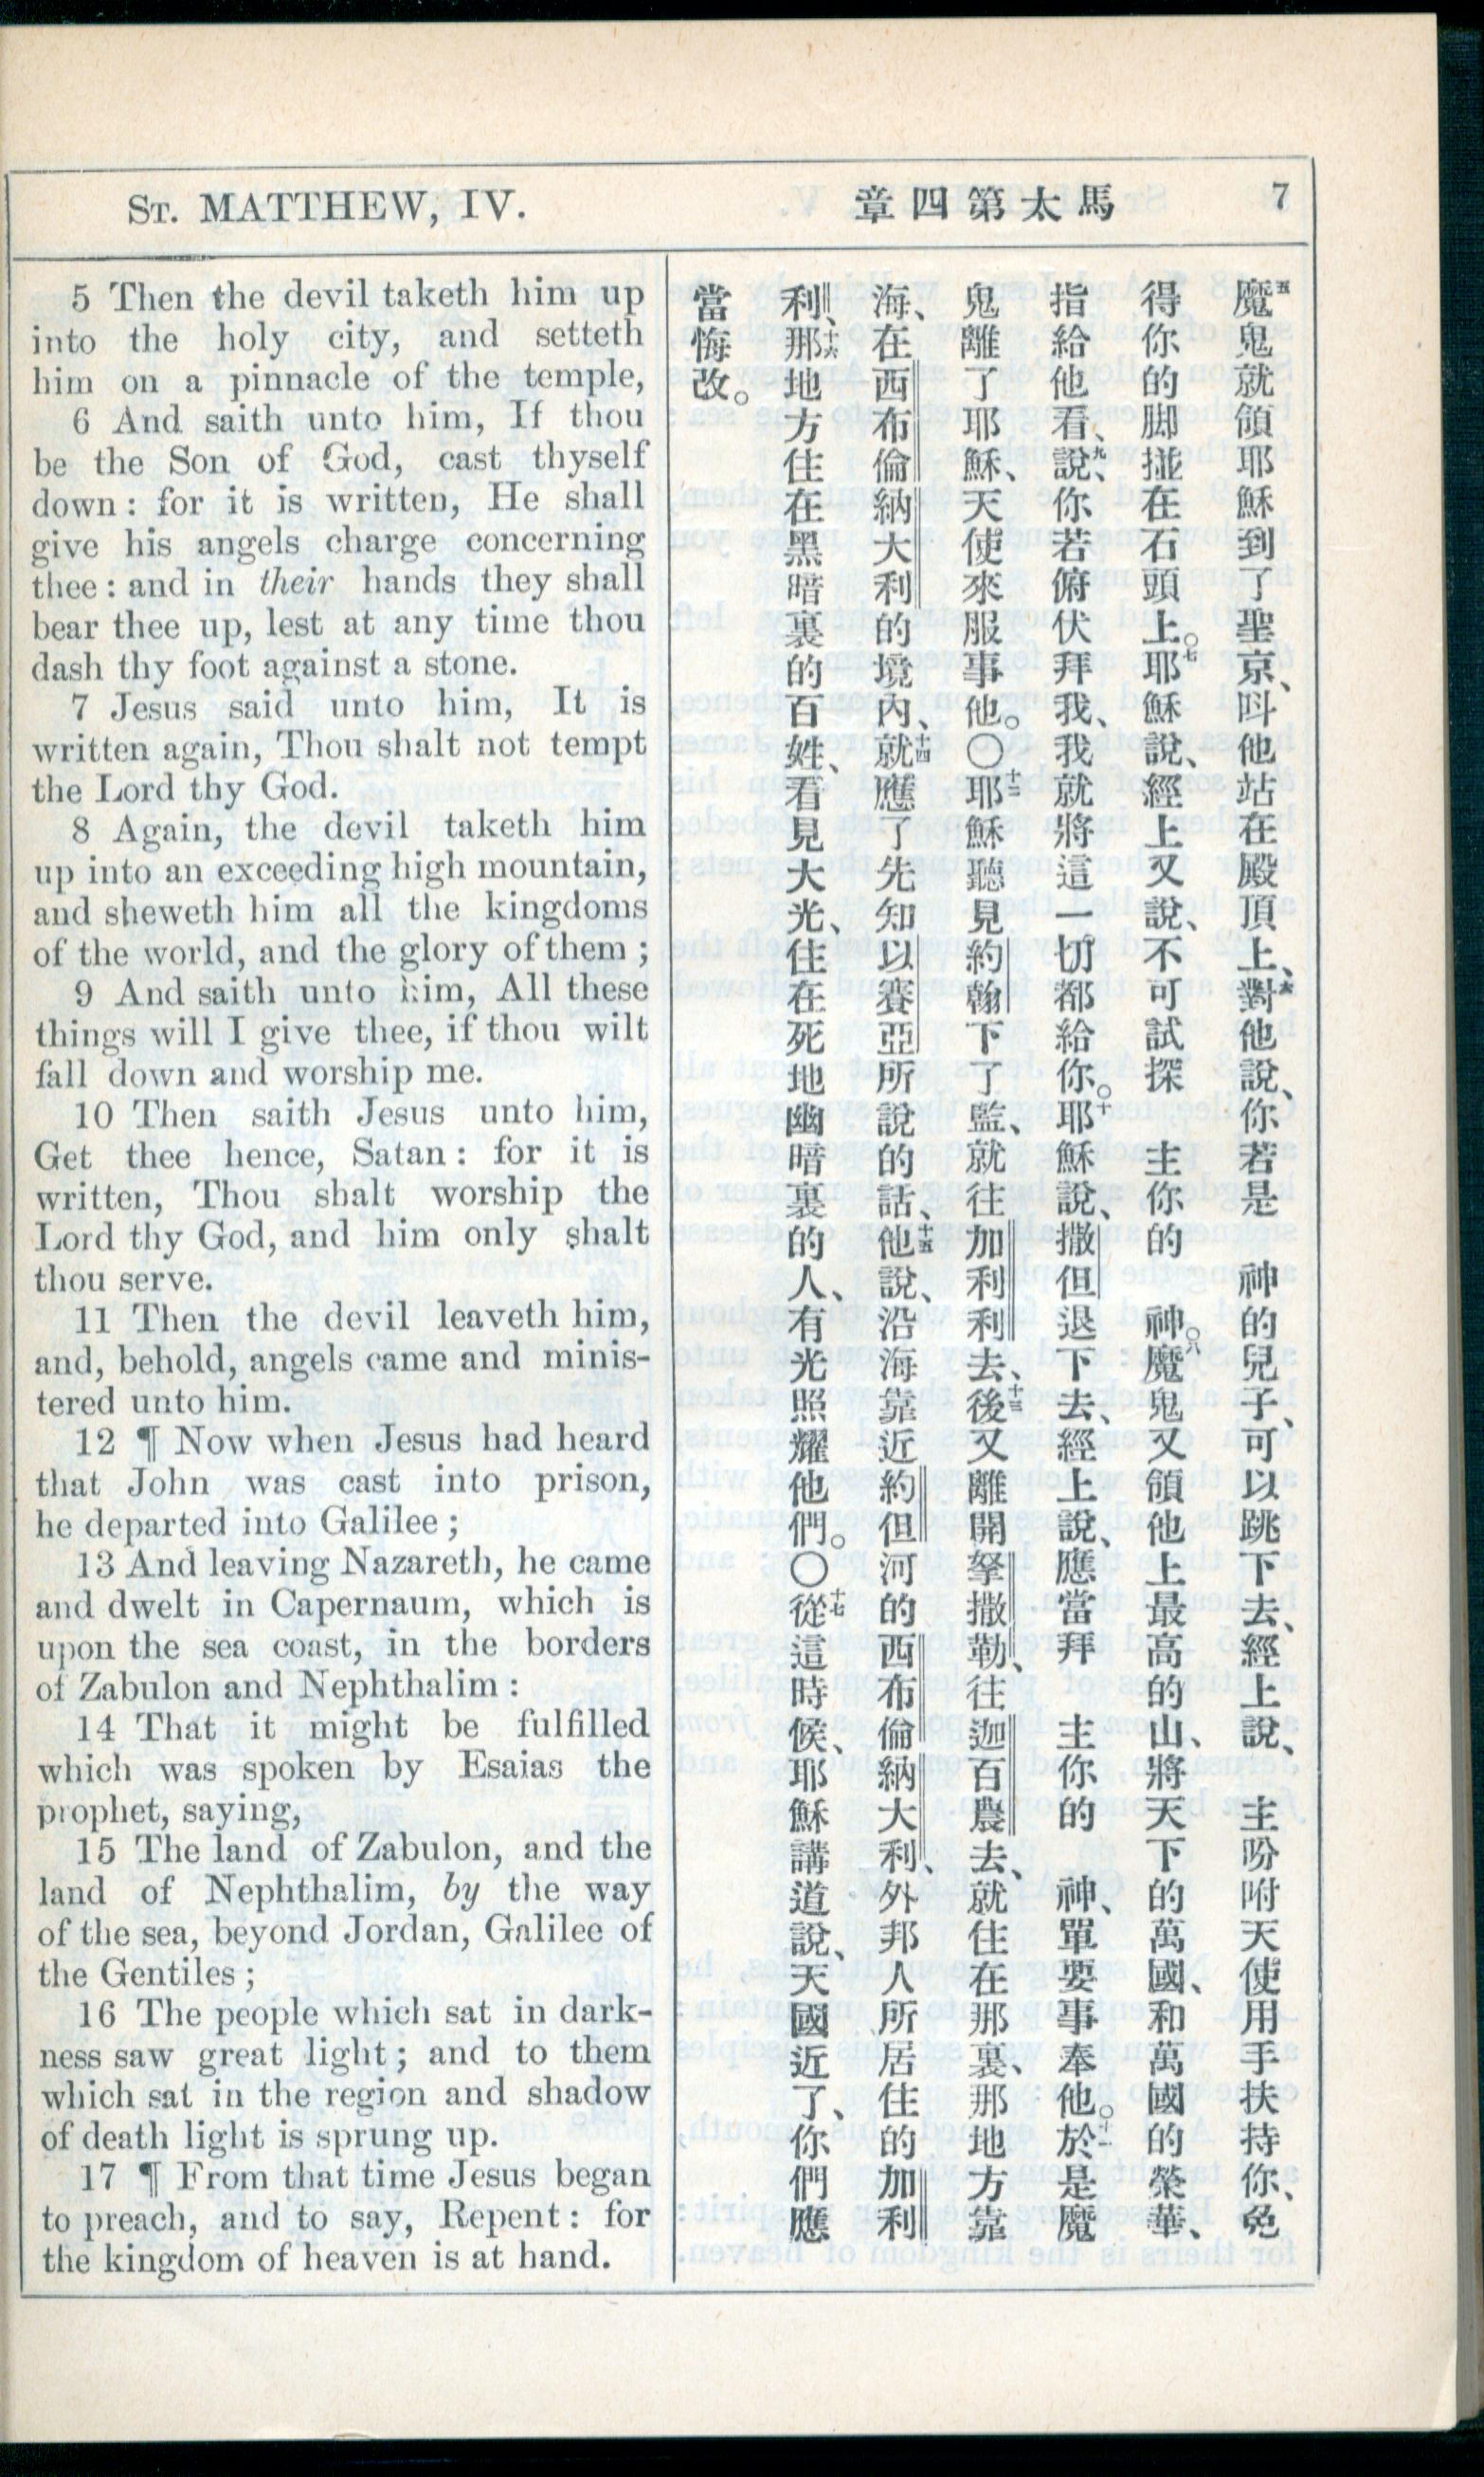 St. MATTHEW, IV.
章四第太馬
7
5 Then the devil taketh him up
into the holy city, and setteth
him on a pinnacle of the temple,
6 And saith unto him, If thou
be the Son of God, cast thyself
down : for it is written, He shall
give his angels charge concerning
thee : and in their hands they shall
bear thee up, lest at any time thou
dash thy foot against a stone.
7 Jesus said unto him, It is
written again, Thou shalt not tempt
the Lord thy God.
8 Again, the devil taketh him
up into an exceeding high mountain,
and sheweth him all the kingdoms
of the world, and the glory of them ;
9 And saith unto him, All these
things will I give thee, if thou wilt
fall down and worship me.
10 Then saith Jesus unto him,
Get thee hence, Satan : for it is
written, Thou shalt worship the
Lord thy God, and him only shalt
thou serve.
11 Then the devil leaveth him,
and, behold, angels came and minis-
tered unto him.
12 ¶ Now when Jesus had heard
that John was cast into prison,
he departed into Galilee ;
13 And leaving Nazareth, he came
and dwelt in Capernaum, which is
upon the sea coast, in the borders
of Zabulon and Nephthalim :
14 That it might be fulfilled
which was spoken by Esaias the
prophet, saying,
15 The land of Zabulon, and the
land of Nephthalim, by the way
of the sea, beyond Jordan, Galilee of
the Gentiles ;
16 The people which sat in dark-
ness saw great light ; and to them
which sat in the region and shadow
of death light is sprung up.
17 ¶ From that time Jesus began
to preach, and to say, Repent : for
the kingdom of heaven is at hand.
五魔鬼就領耶穌到了聖京、呌他站在殿頂上、六對他說、你若是 神的兒子、可以跳下去、經上說、 主吩咐天使用手扶持你、免
得你的脚掽在石頭上。七耶穌說、經上又說、不可試探 主你的 神。八魔鬼又領他上最高的山、將天下的萬國、和萬國的榮華、
指給他看、九說、你若俯伏拜我、我就將這一切都給你。十耶穌說、撒但退下去、經上說、應當拜 主你的 神、單要事奉他。十一於是魔
鬼離了耶穌、天使來服事他。〇十二耶穌聽見約翰下了監、就往加利利去、十三後又離開拏撒勒、往迦百農去、就住在那裏、那地方靠
海、在西布倫納大利的境內、十四就應了先知以賽亞所說的話、十五他說、沿海靠近約但河的西布倫納大利、外邦人所居住的加利
利、十六那地方住在黑暗裏的百姓、看見大光、住在死地幽暗裏的人、有光照耀他們。〇十七從這時候、耶穌講道說、天國近了、你們應
當悔改。